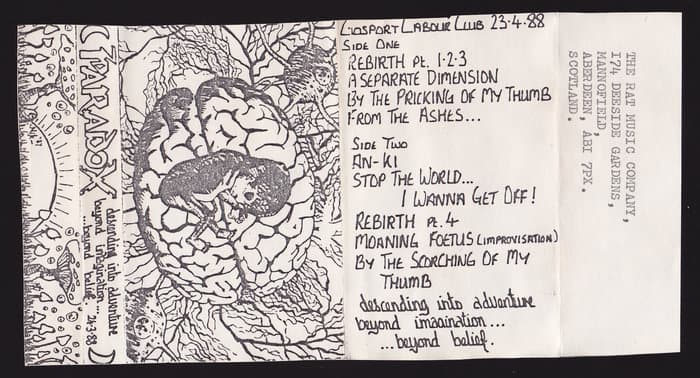 PARADOX
descending into adventure
beyond imagination...
...beyond belief. 26·3·88
GOSPORT LABOUR CLUB 23·4·88
SIDE ONE
REBIRTH PT. 1·2·3
A SEPARATE DIMENSION
BY THE PRICKING OF MY THUMB
FROM THE ASHES...
SIDE TWO
AN-KI
STOP THE WORLD...
I WANNA GET OFF!
REBIRTH PT. 4
MOANING FOETUS (IMPROVISATION)
BY THE SCORCHING OF MY
THUMB
descending into adventure
beyond imagination...
...beyond belief.
THE RAT MUSIC COMPANY,
174 DEESIDE GARDENS,
MANNOFIELD,
ABERDEEN, AB1 7PX.
SCOTLAND.